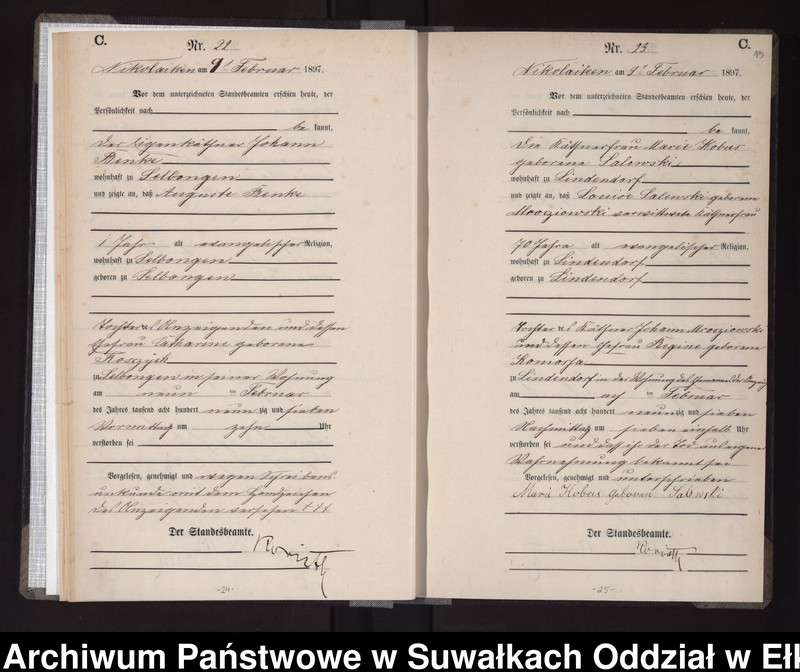 C.
Nr. 22
Nikolaiken am 9t Februar 1897.
Vor dem unterzeichneten Standesbeamten erschien heute, der
Persönlichkeit nach
be kannt,
der Eigenkäthner Johann
wohnhaft zu Selbongen
und zeigte an, daß Auguste
1 Jahr alt evangelischer Religion,
wohnhaft zu Selbongen
geboren zu Selbongen
Tochter des Anzeigenden und dessen
Ehefrau Catharine geborene
zu Selbongen in seiner Wohnung
am neun ten Februar
des Jahres tausend acht hundert neun zig und sieben
Vormittags um zehn Uhr
verstorben sei
Vorgelesen, genehmigt und wegen Schreibens
unkunde mit dem Handzeichen
des Anzeigenden versehen + + +
Der Standesbeamte.
-24-
C.
Nr. 23
Nikolaiken am Februar 1897.
Vor dem unterzeichneten Standesbeamten erschien heute, der
Persönlichkeit nach
be kannt,
Die Käthnerfrau Marie Kobus
geborene Salewski
wohnhaft zu Lindendorf
und zeigte an, daß Louise Salewski geborene
Mrosziowski verwittwete Käthnerfrau
70 Jahre alt evangelischer Religion,
wohnhaft zu Lindendorf
geboren zu Lindendorf
Tochter des Käthner Johann Mrosziowski
und dessen Ehefrau Regine geborene
Komossa
zu Lindendorf in der Wohnung des der
am Februar
des Jahres tausend acht hundert neunzig und sieben
Nachmittags um sieben einhalb Uhr
verstorben sei und daß ihr der Tod aus eigener
Wahrnehmung bekannt sei
Vorgelesen, genehmigt und unterschrieben
Marie Kobus geborene Salewski
Der Standesbeamte.
-25-
Archiwum Państwowe w Suwałkach Oddział w Eł